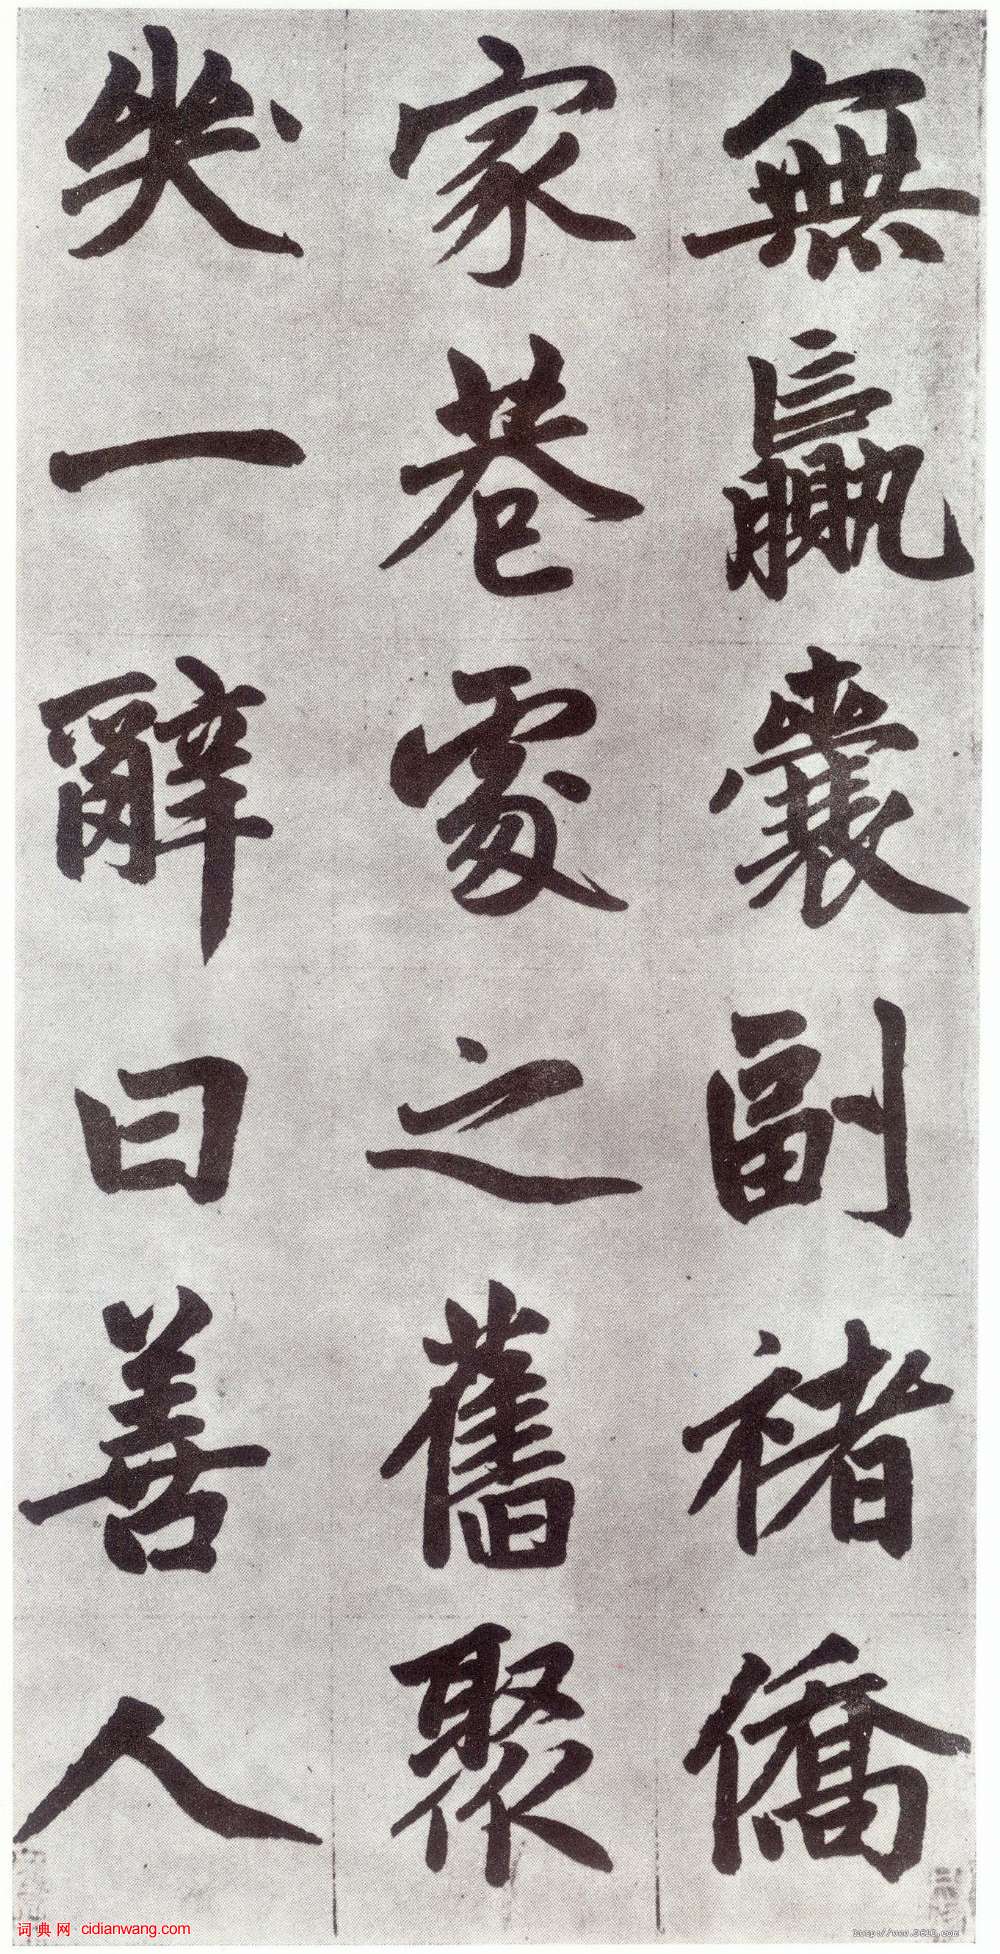 無贏囊副褚僑
家巷處之舊聚
哭一辭曰善人
词典网 cidianwang.com